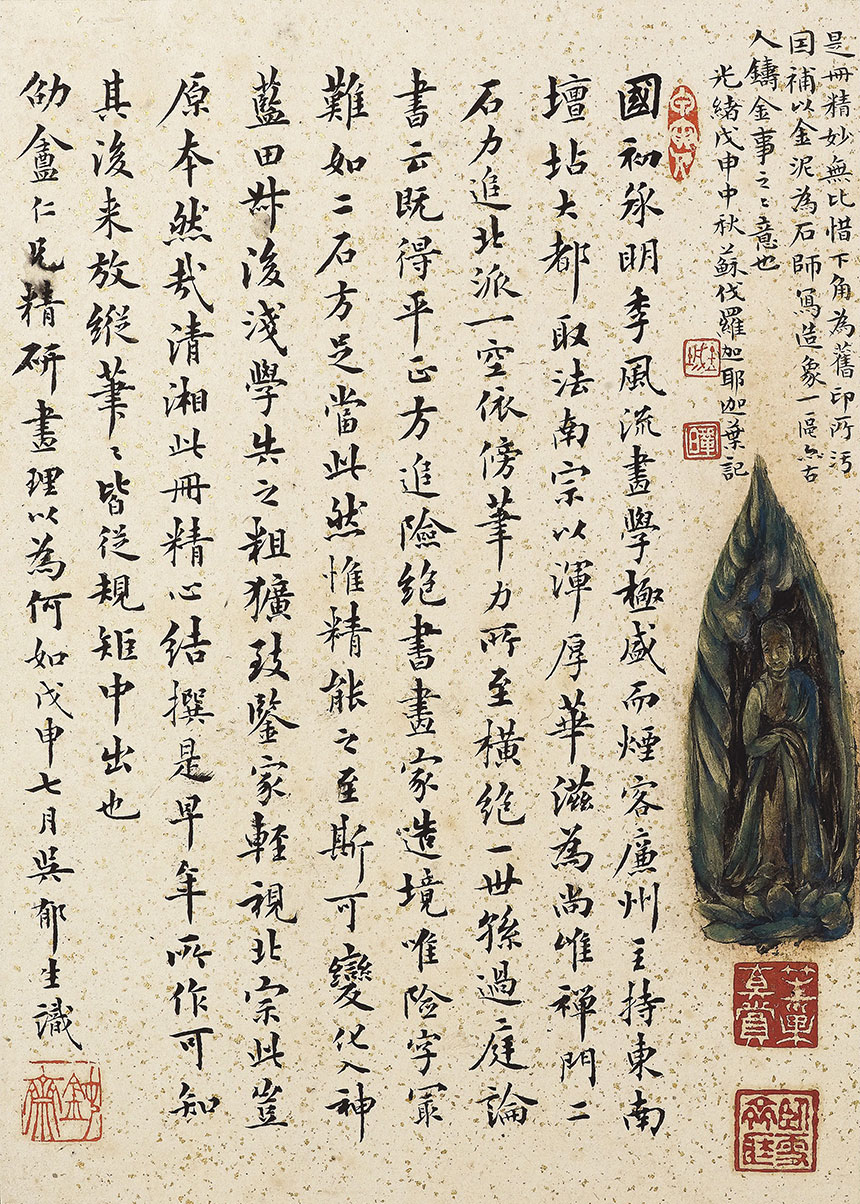 是冊精妙無比惜下角為舊印所污
因補以金泥為石師寫造象一區亦古
人鑄金事之〻意也
光緒戊申中秋蘇伐羅伽耶迦葉記
國初承明季風流畫學極盛而煙客廉州主持東南
壇坫大都取法南宗以渾厚華滋為尚惟禪門二
石力追北派一空依傍筆力所至橫絶一世孫過庭論
書云既得平正方追險絶書畫家造境唯險字冣
難如二石方足當此然惟精能之至斯可變化入神
藍田叔後淺學失之粗獷致鑒家輕視北宗此豈
原本然哉清湘此冊精心結撰是早年所作可知
其後来放縱筆〻皆從規矩中出也
劭盦仁兄精研畫理以為何如戊申七月吳郁生識
鈍齋
笙巢真賞